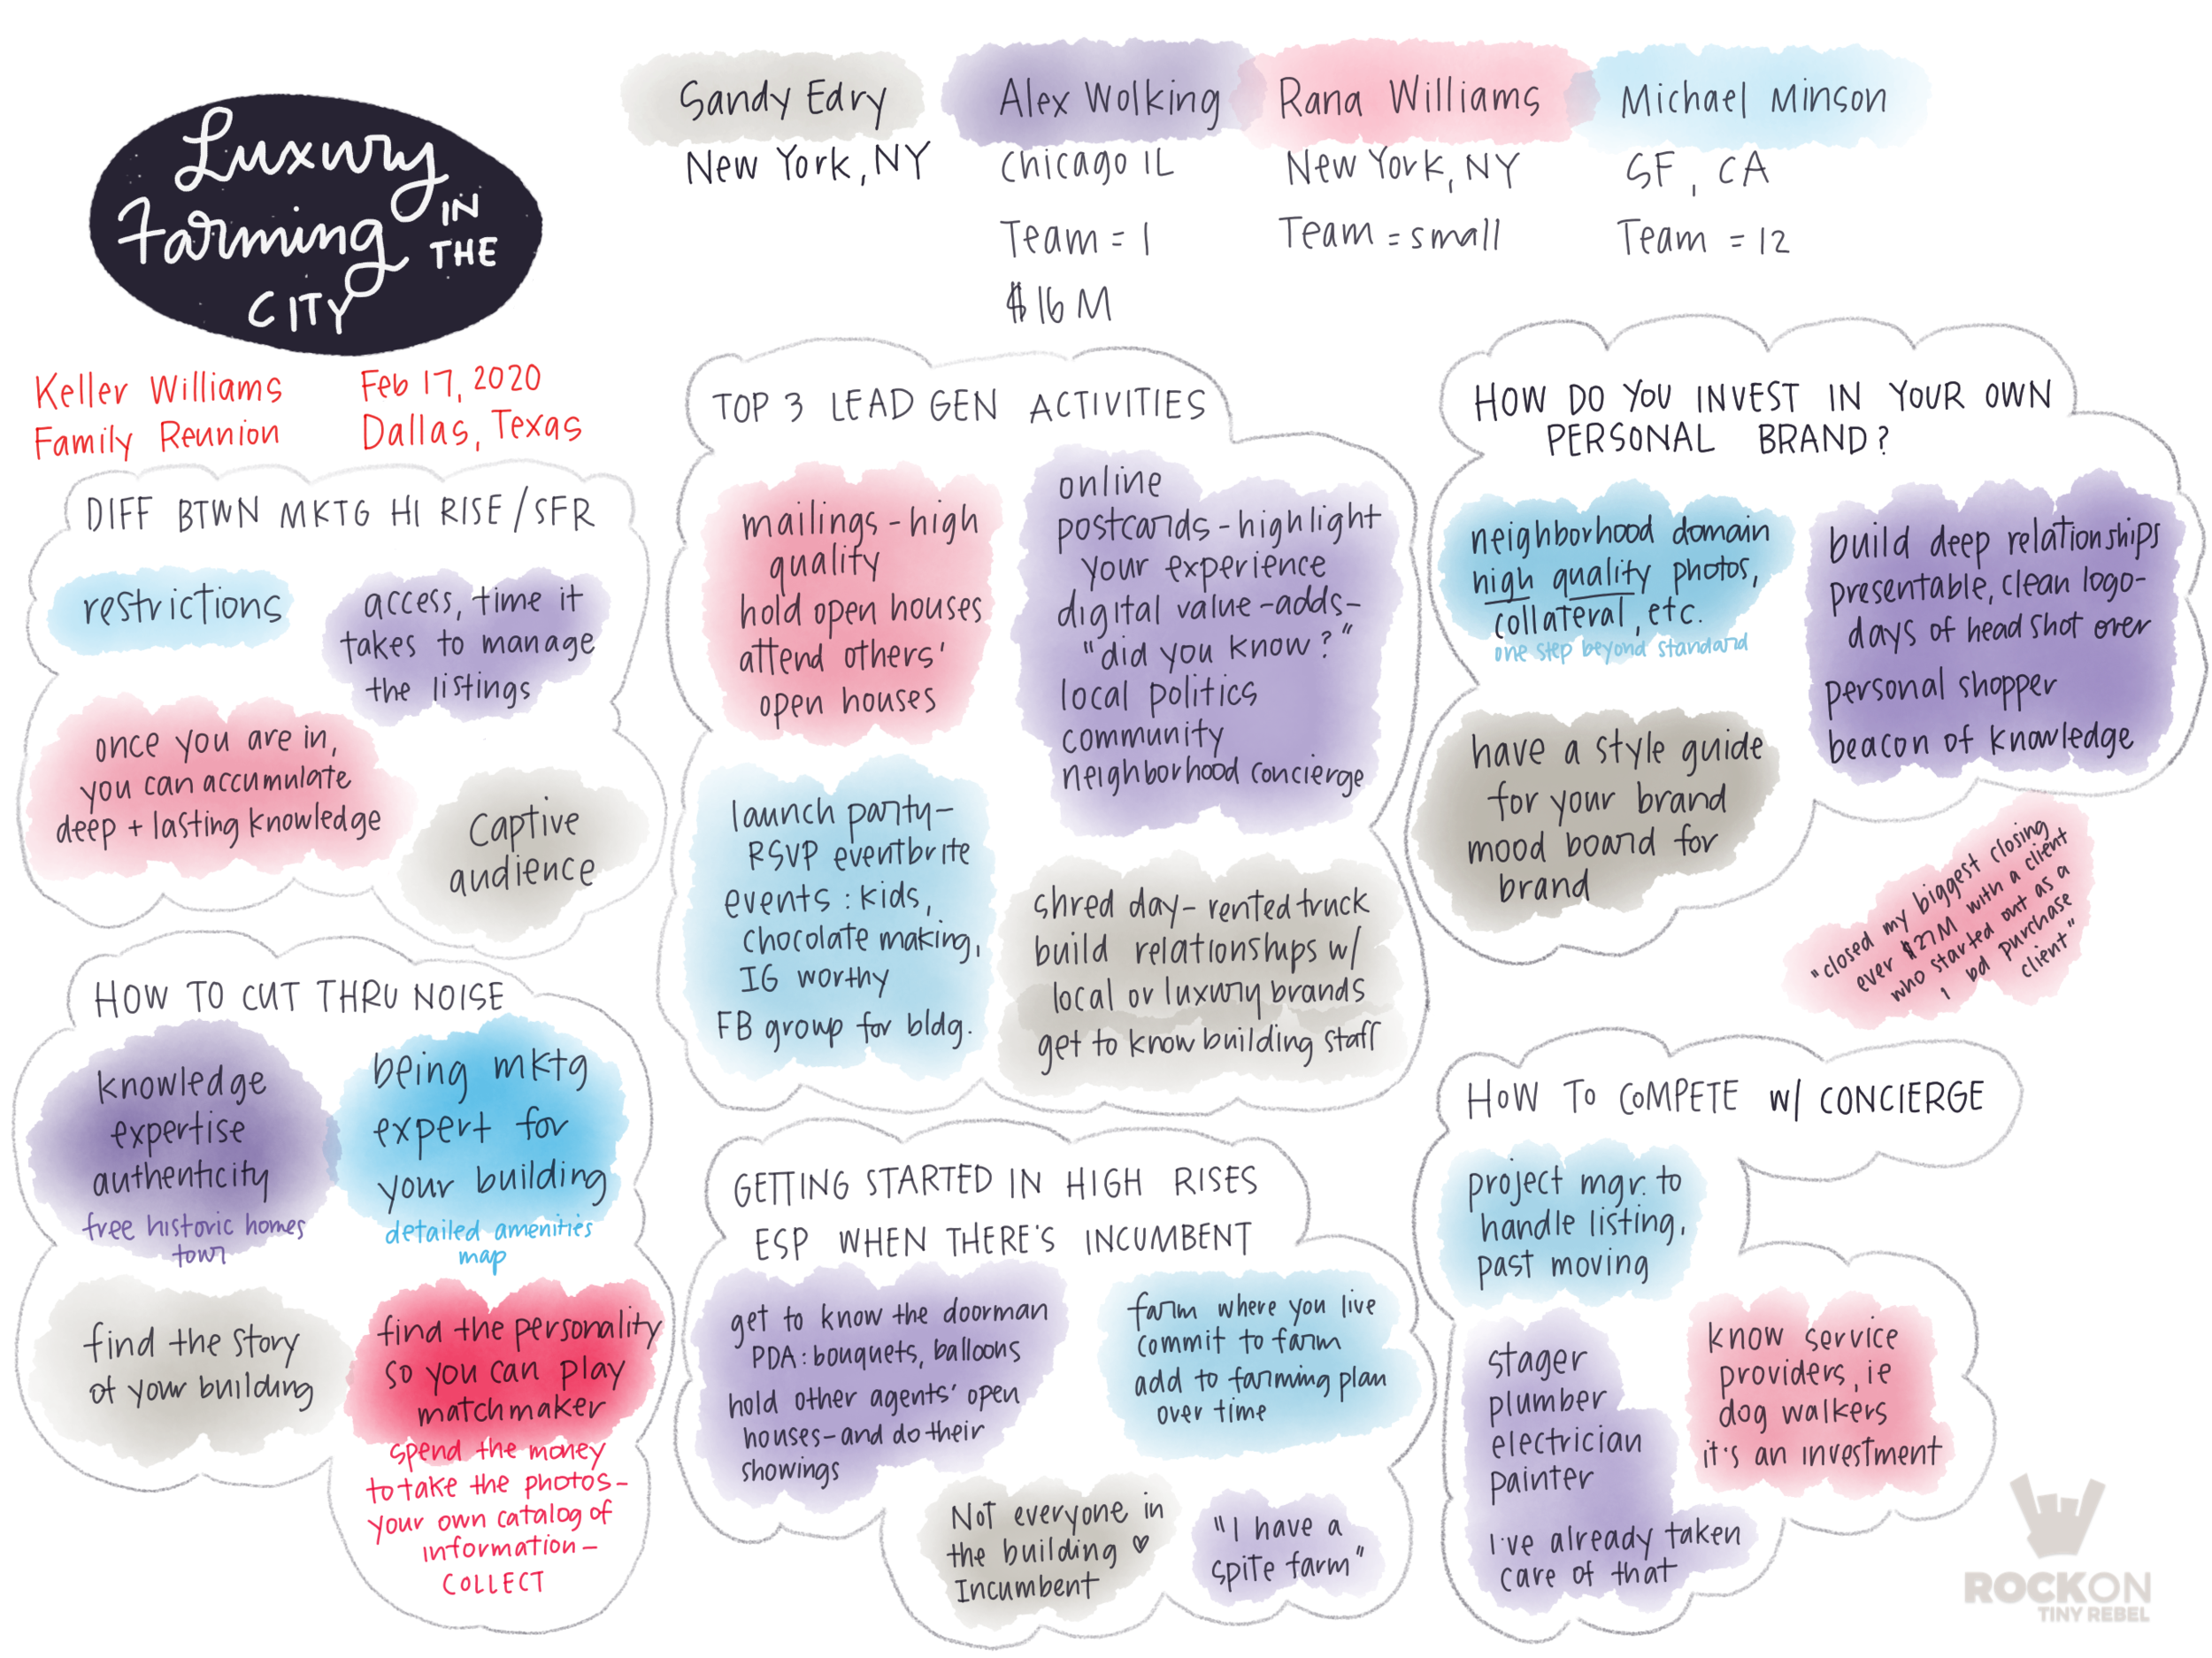 Luxury
Farming IN
THE
CITY
Keller Williams
Family Reunion
Feb 17, 2020
Dallas, Texas
Sandy Edry
New York, NY
Alex Wolking
Chicago IL
Team = 1
$16 M
Rana Williams
New York, NY
Team = small
Michael Minson
SF, CA
Team = 12
DIFF BTWN MKTG HI RISE / SFR
restrictions
access, time it
takes to manage
the listings
once you are in,
you can accumulate
deep + lasting knowledge
captive
audience
HOW TO CUT THRU NOISE
knowledge
expertise
authenticity
free historic homes
town
being mktg
expert for
your building
detailed amenities
map
find the story
of your building
find the personality
so you can play
matchmaker
spend the money
to take the photos-
your own catalog of
information-
COLLECT
TOP 3 LEAD GEN ACTIVITIES
mailings - high
quality
hold open houses
attend others'
open houses
online
postcards - highlight
your experience
digital value-adds-
"did you know?"
local politics
community
neighborhood concierge
launch party-
RSVP eventbrite
events: kids,
chocolate making,
IG worthy
FB group for bldg.
shred day - rented truck
build relationships w/
local or luxury brands
get to know building staff
GETTING STARTED IN HIGH RISES
ESP WHEN THERE'S INCUMBENT
get to know the doorman
PDA: bouquets, balloons
hold other agents' open
houses - and do their
showings
farm where you live
commit to farm
add to farming plan
over time
Not everyone in
the building ♡
Incumbent
"I have a
spite farm"
HOW DO YOU INVEST IN YOUR OWN
PERSONAL BRAND?
neighborhood domain
high quality photos,
collateral, etc.
one step beyond standard
build deep relationships
presentable, clean logo-
days of head shot over
personal shopper
beacon of knowledge
have a style guide
for your brand
mood board for
brand
"closed my biggest closing
ever $27M with a client
who started out as a
1 bd purchase
client"
HOW TO COMPETE w/ CONCIERGE
project mgr. to
handle listing,
past moving
stager
plumber
electrician
painter
I've already taken
care of that
know service
providers, ie
dog walkers
it's an investment
ROCKON
TINY REBEL